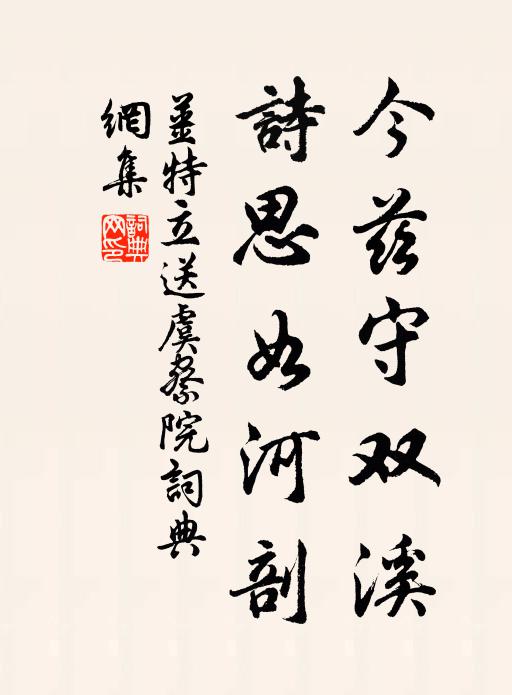 今兹守双溪
詩思如河剖
姜特立送虞察院詞典
網集
詞典網印